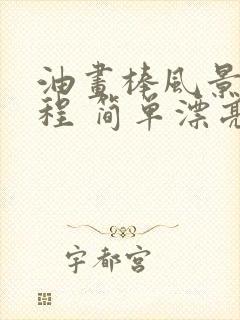 油畫棒風景
程 簡單漂亮
宇都宮